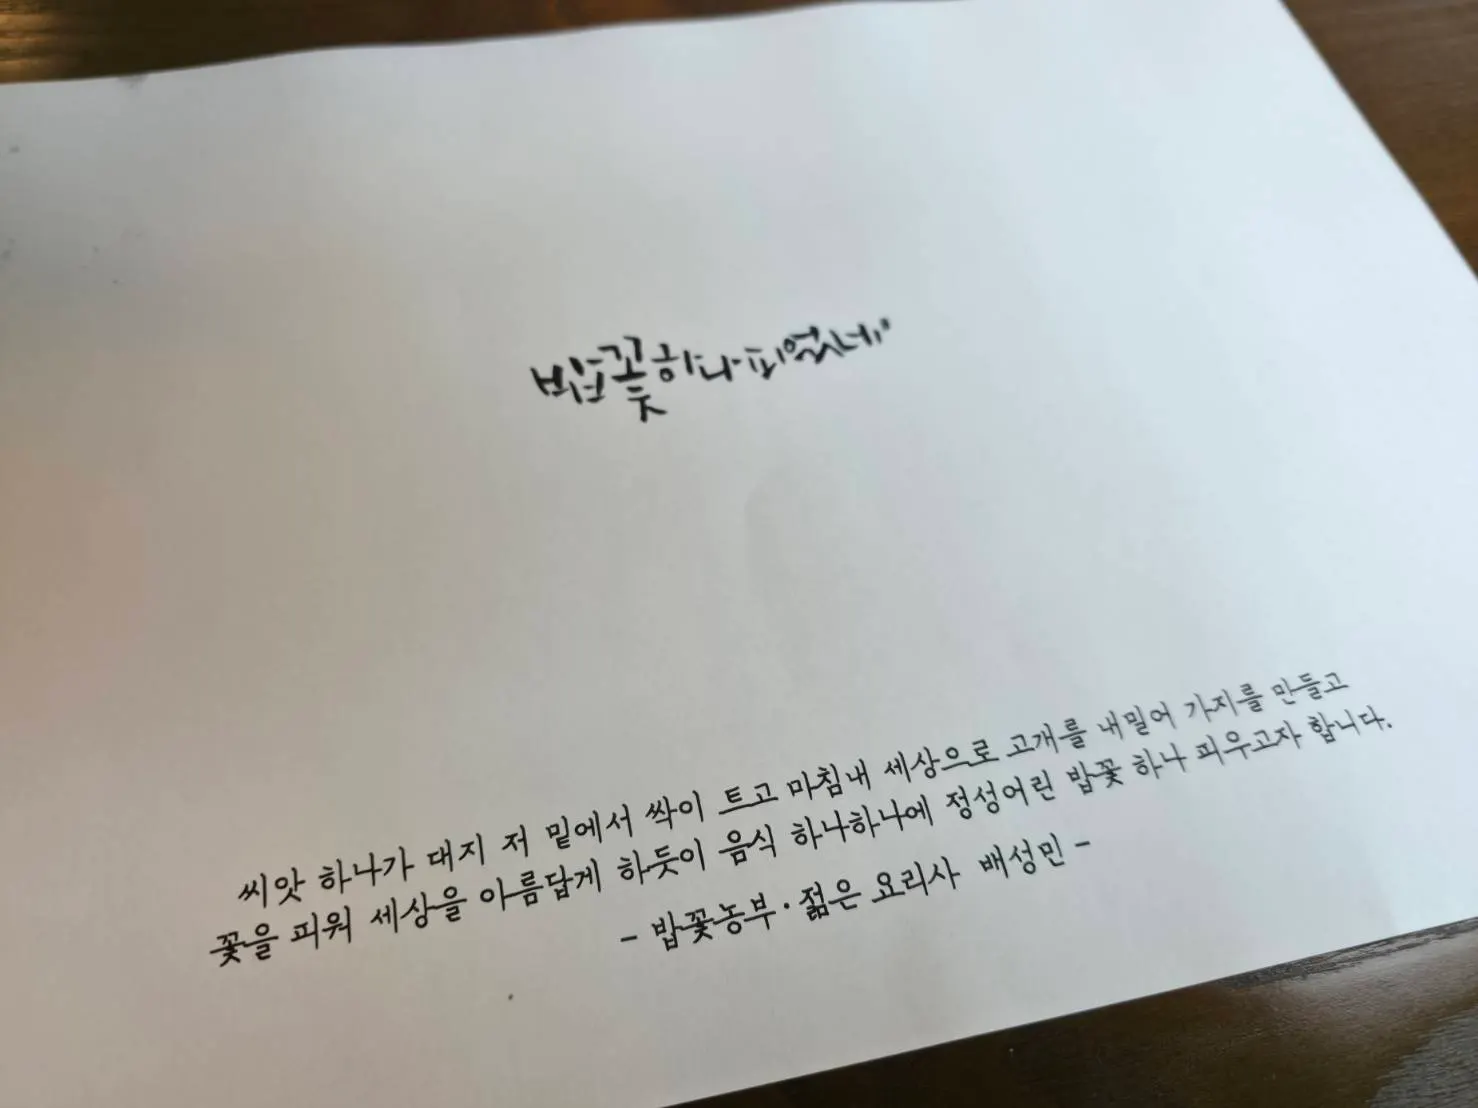 밥꽃하나피었네
씨앗 하나가 대지 저 밑에서 싹이 트고 마침내 세상으로 고개를 내밀어 가지를 만들고
꽃을 피워 세상을 아름답게 하듯이 음식 하나하나에 정성어린 밥꽃 하나 피우고자 합니다.
- 밥꽃농부·젊은 요리사 배성민 -